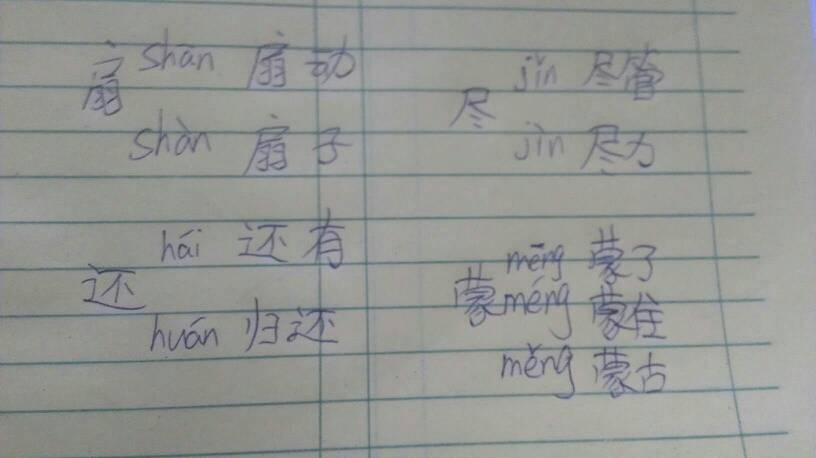 扇
shān 扇动
shàn 扇子
尽
jǐn 尽管
jìn 尽力
还
hái 还有
huán 归还
蒙
mēng 蒙了
méng 蒙住
měng 蒙古